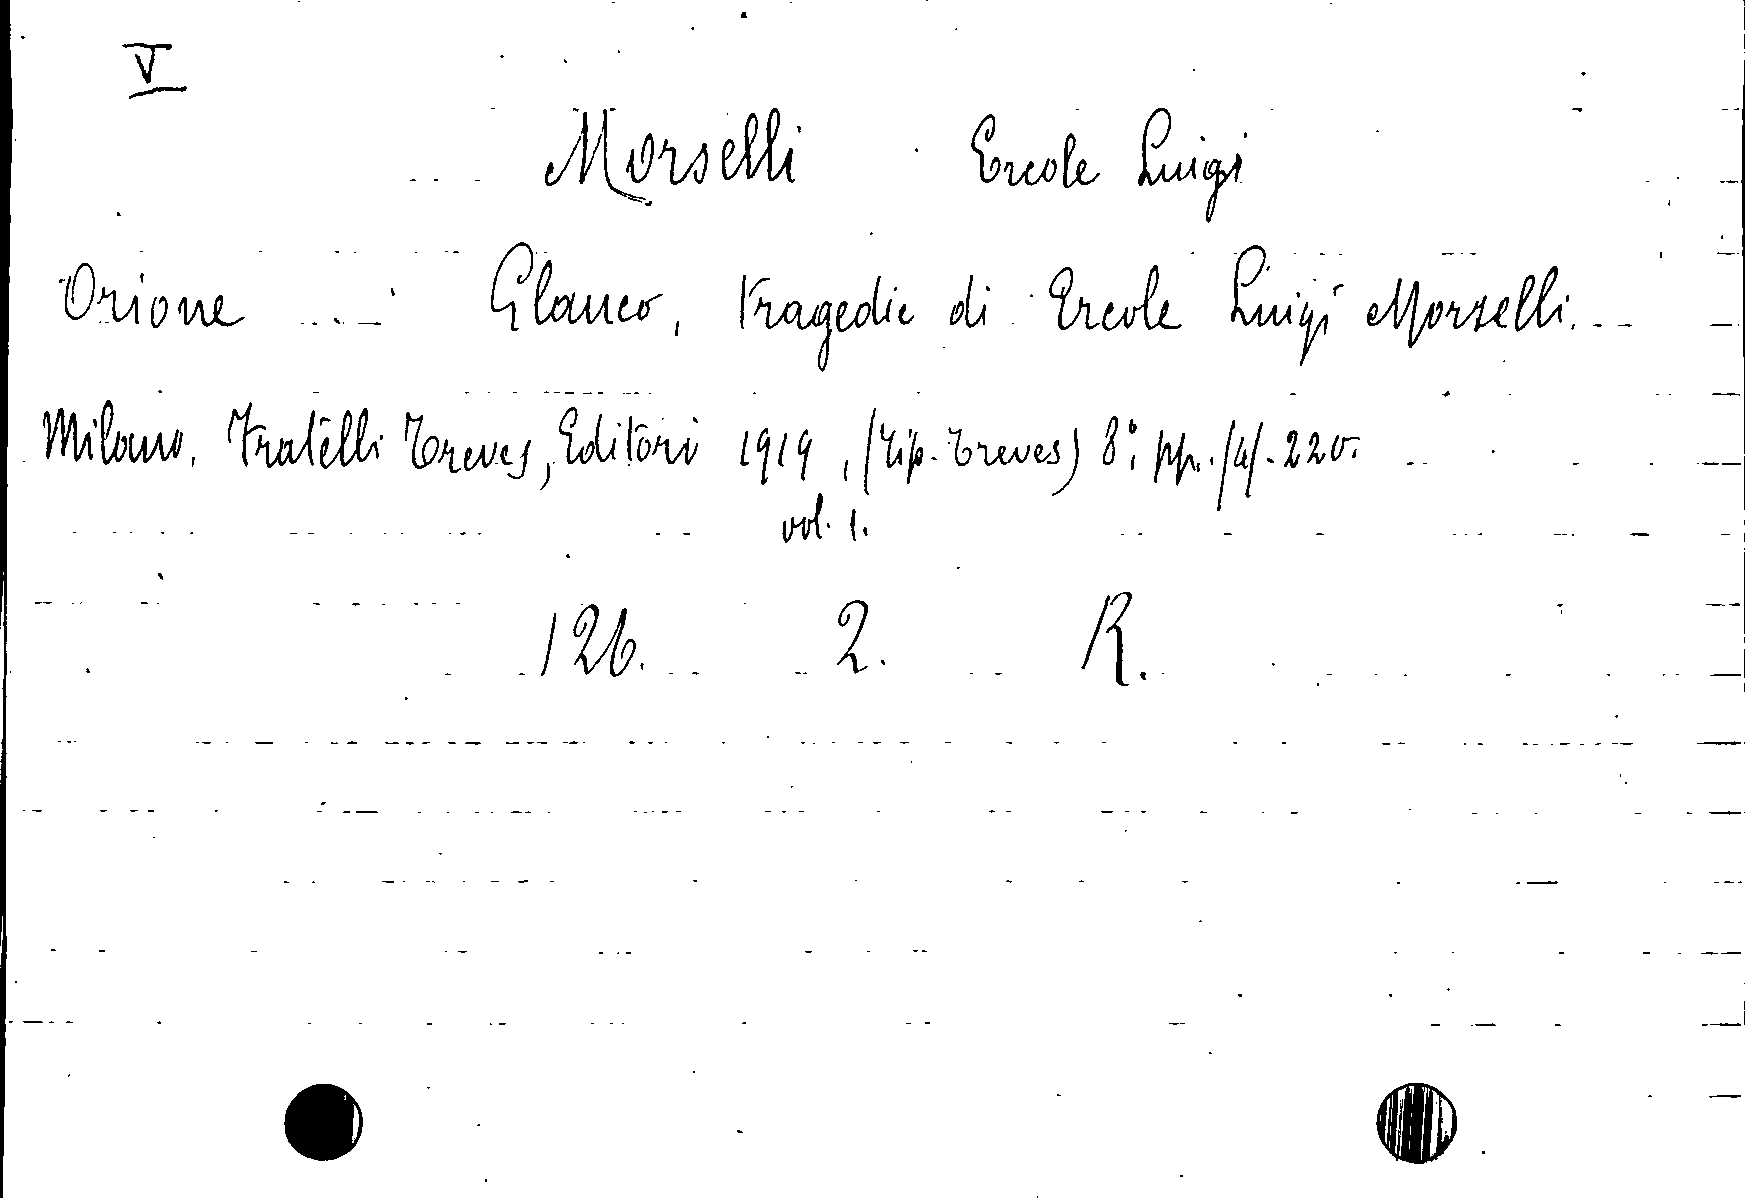 V
Morselli Ercole Luigi
Orione Glauco, tragedie di Ercole Luigi Morselli.
Milano, Fratelli Treves, Editori 1919, (Tip. Treves) 8°, pp. /4/. 220.
vol. 1.
126. 2. R.